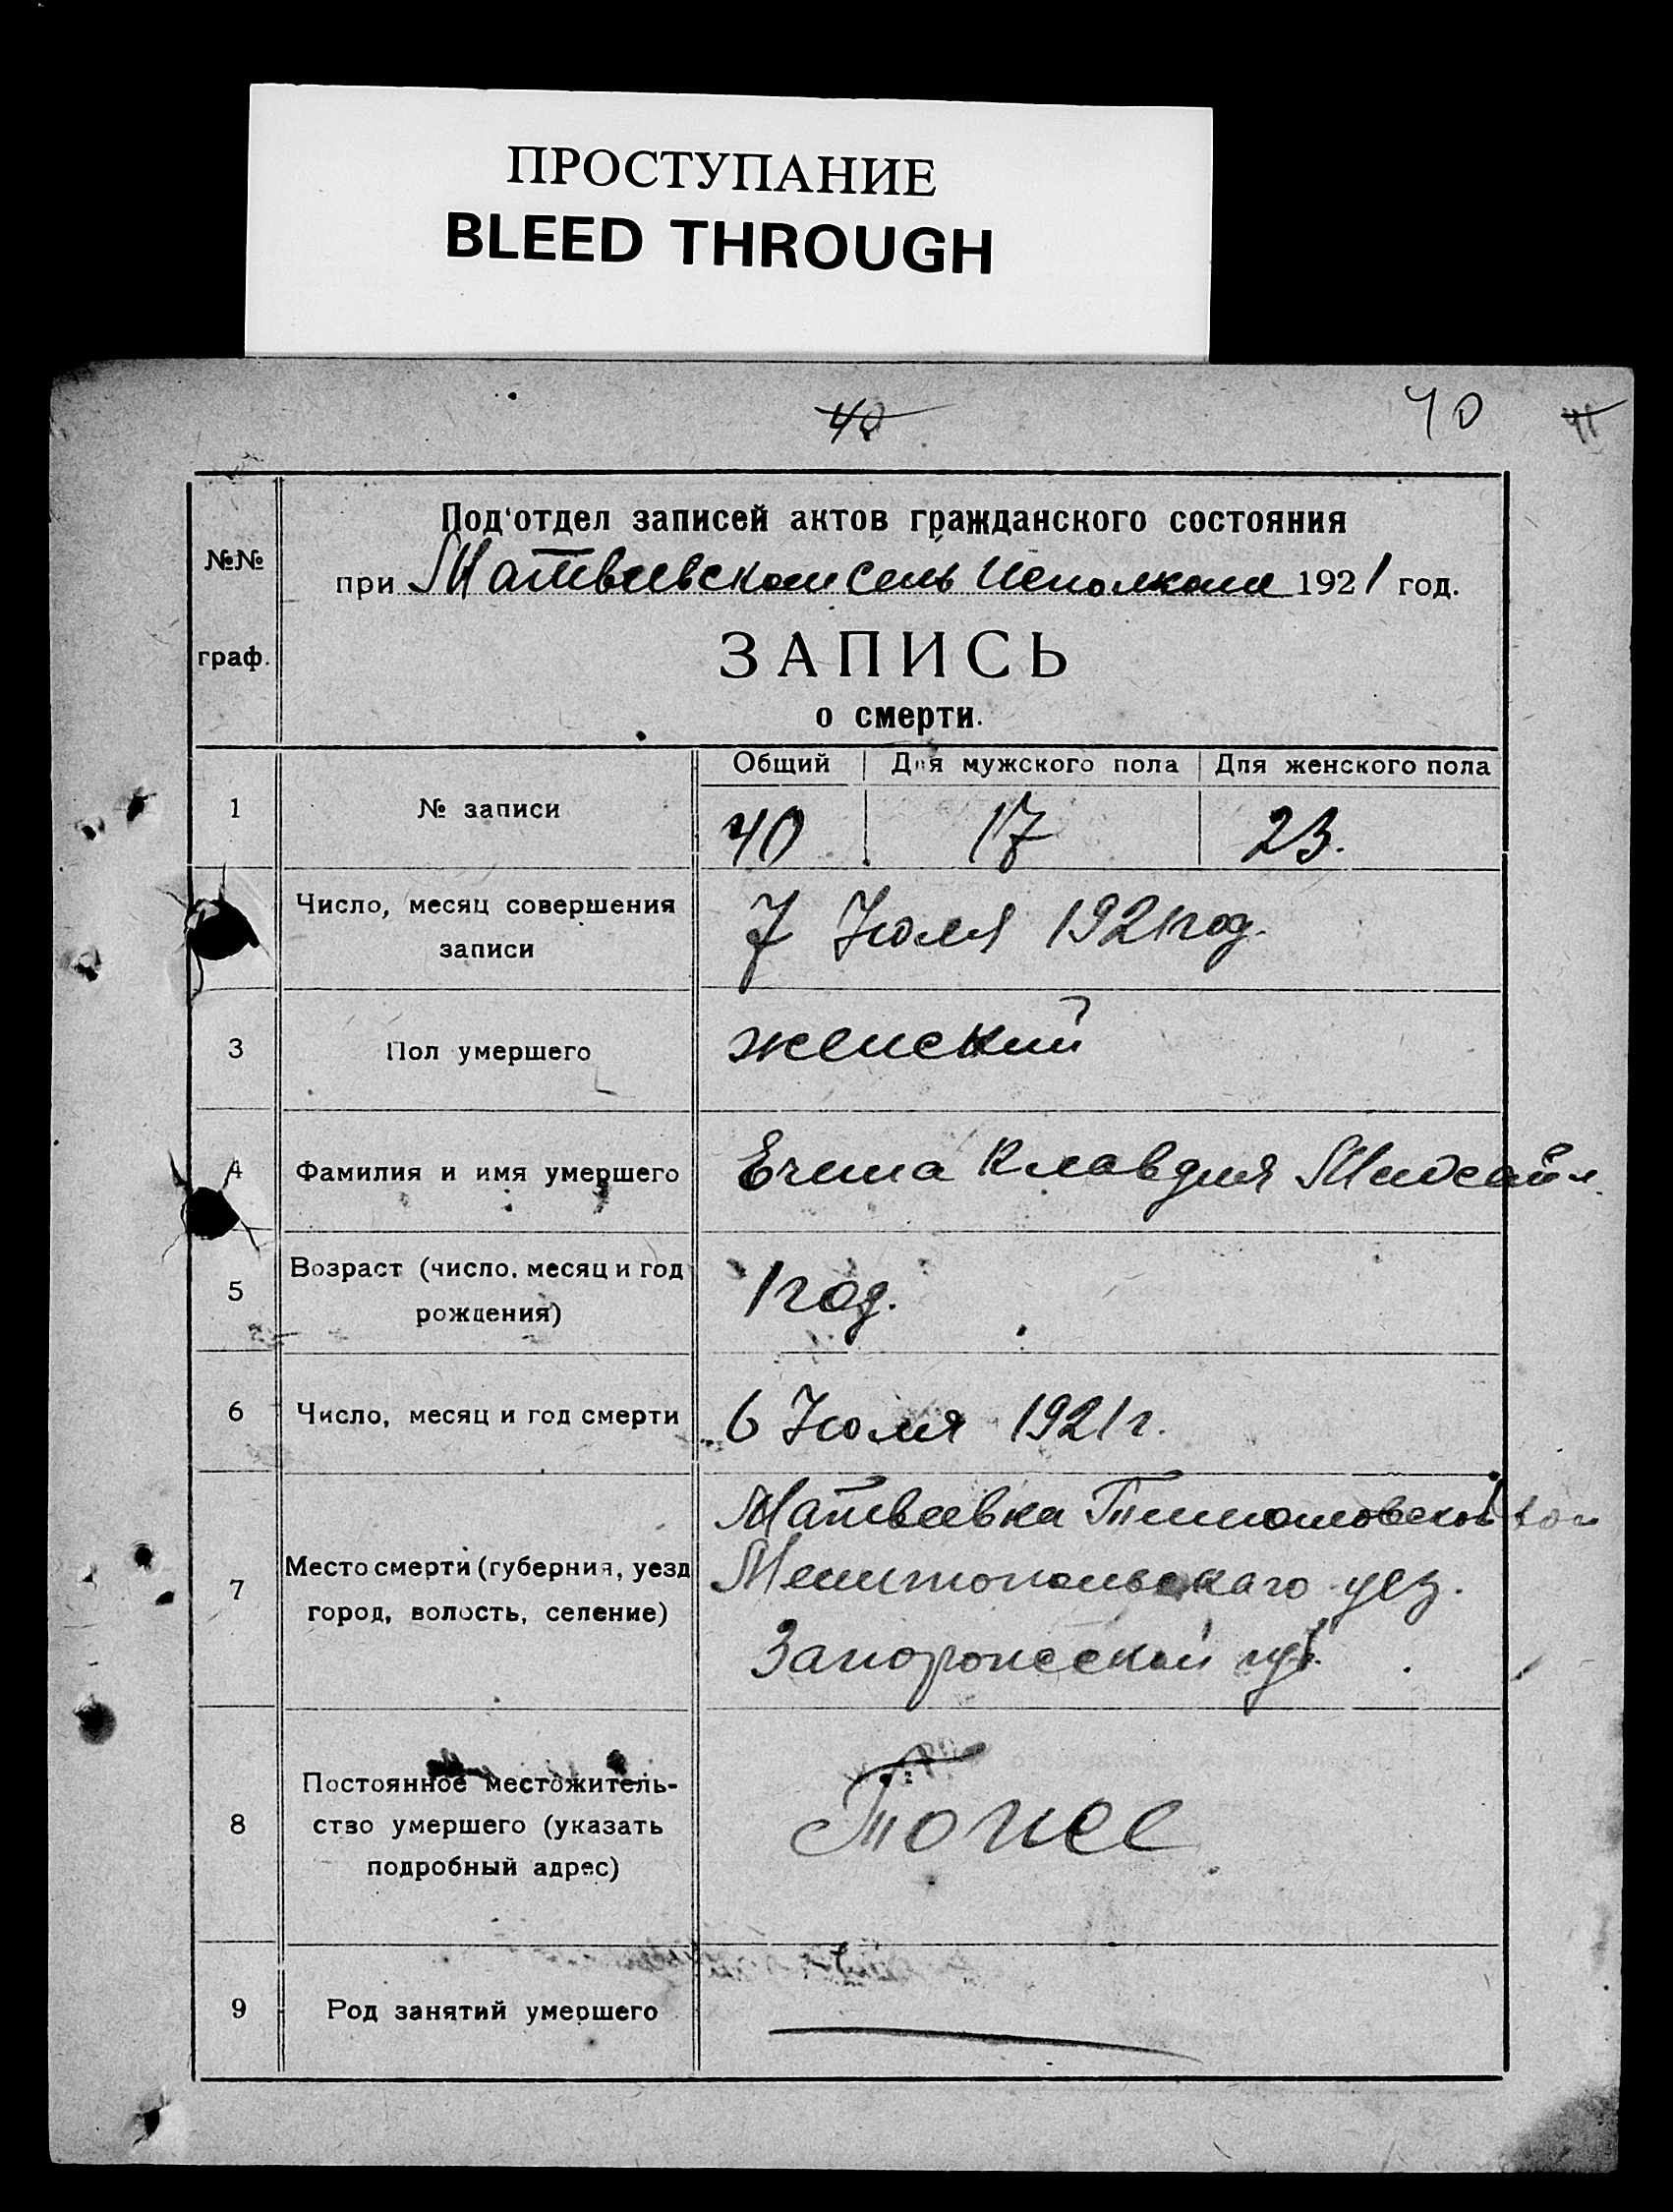 ПРОСТУПАНИЕ
BLEED THROUGH
40
40
41
№№
граф.
Под'отдел записей актов гражданского состояния
при Матвеевском Сель Исполкоме 1921 год.
ЗАПИСЬ
о смерти.
Общий Для мужского пола Для женского пола
1 № записи 40 17 23.
Число, месяц совершения
записи
7 Июля 1921 год.
3 Пол умершего женский
4 Фамилия и имя умершего Клавдия
5 Возраст (число, месяц и год
рождения)
1 год.
6 Число, месяц и год смерти 6 Июля 1921 г.
7 Место смерти (губерния, уезд
город, волость, селение)
Матвеевка
Мелитопольскаго уез.
Запорожской губ.
8 Постоянное местожитель-
ство умершего (указать
подробный адрес)
Тоже
9 Род занятий умершего